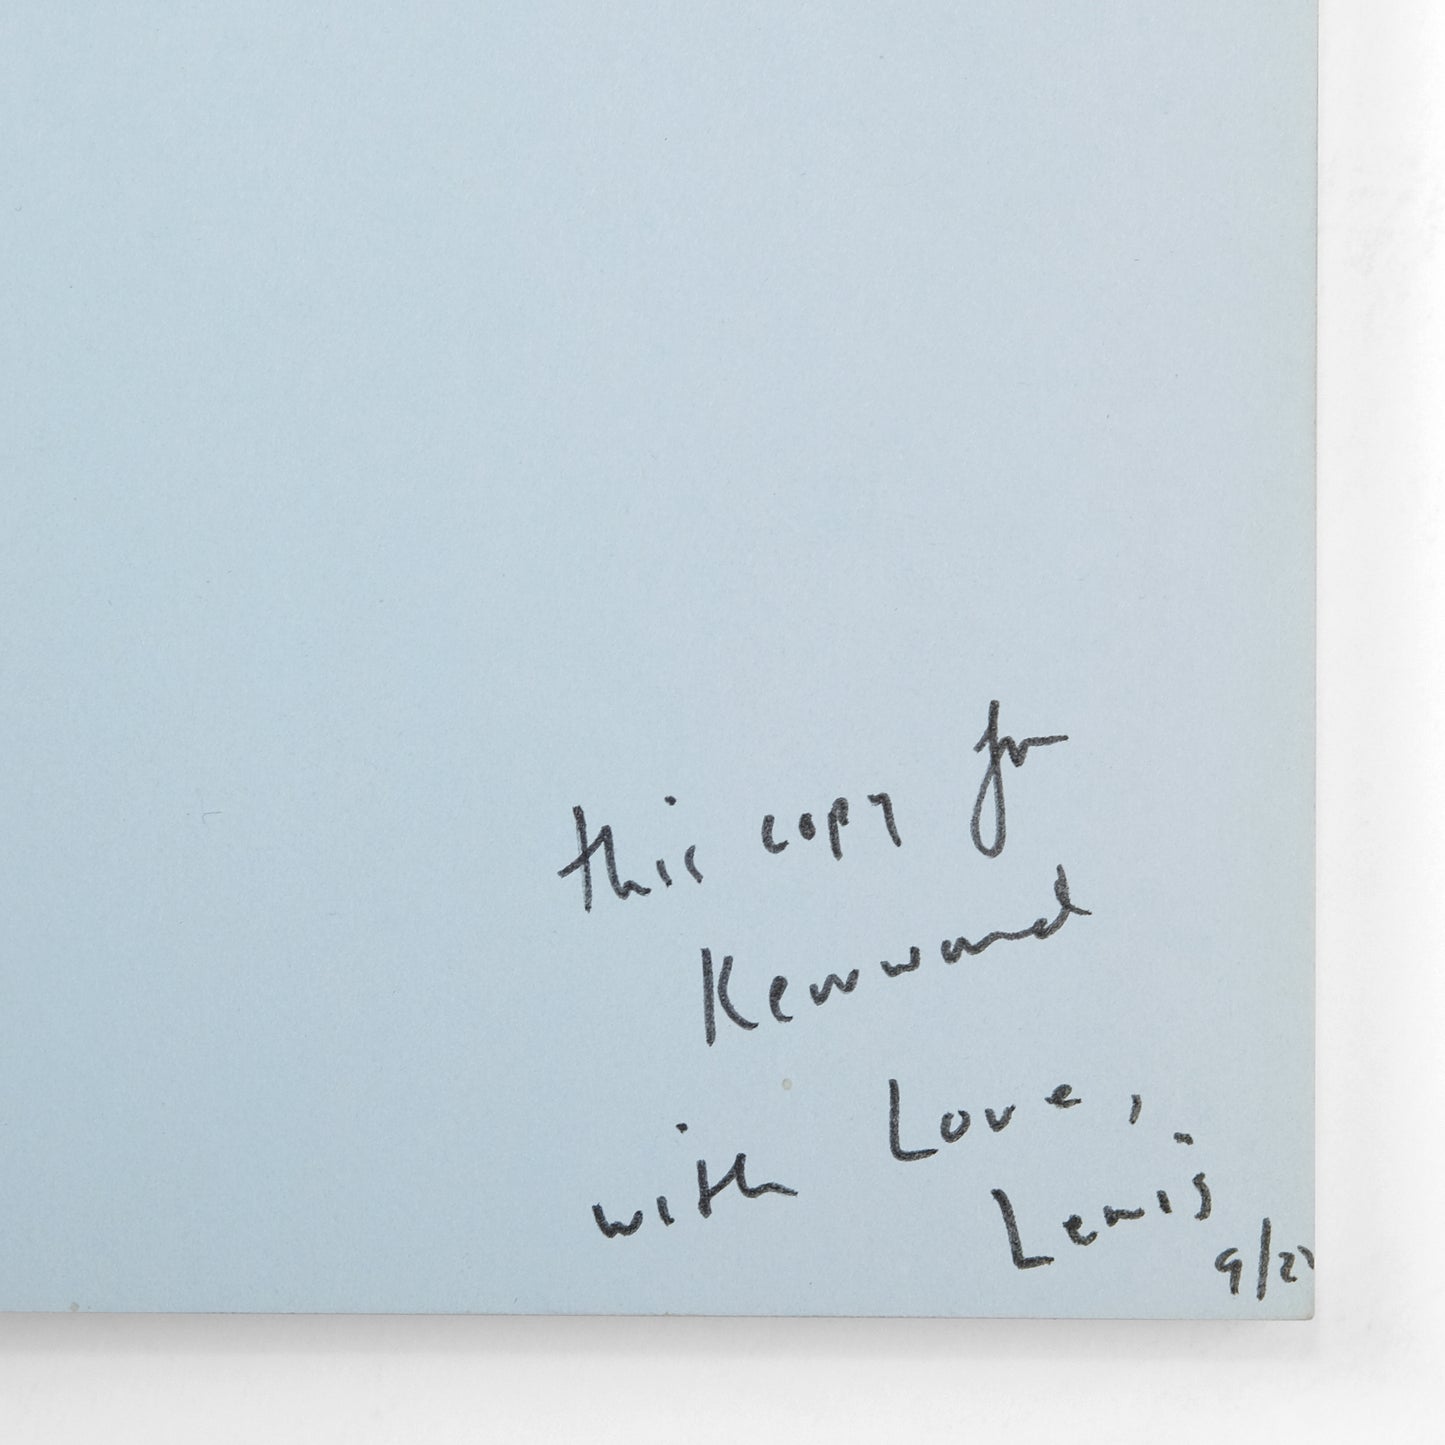 this copy for
Kenward
with Love,
Lewis
9/27